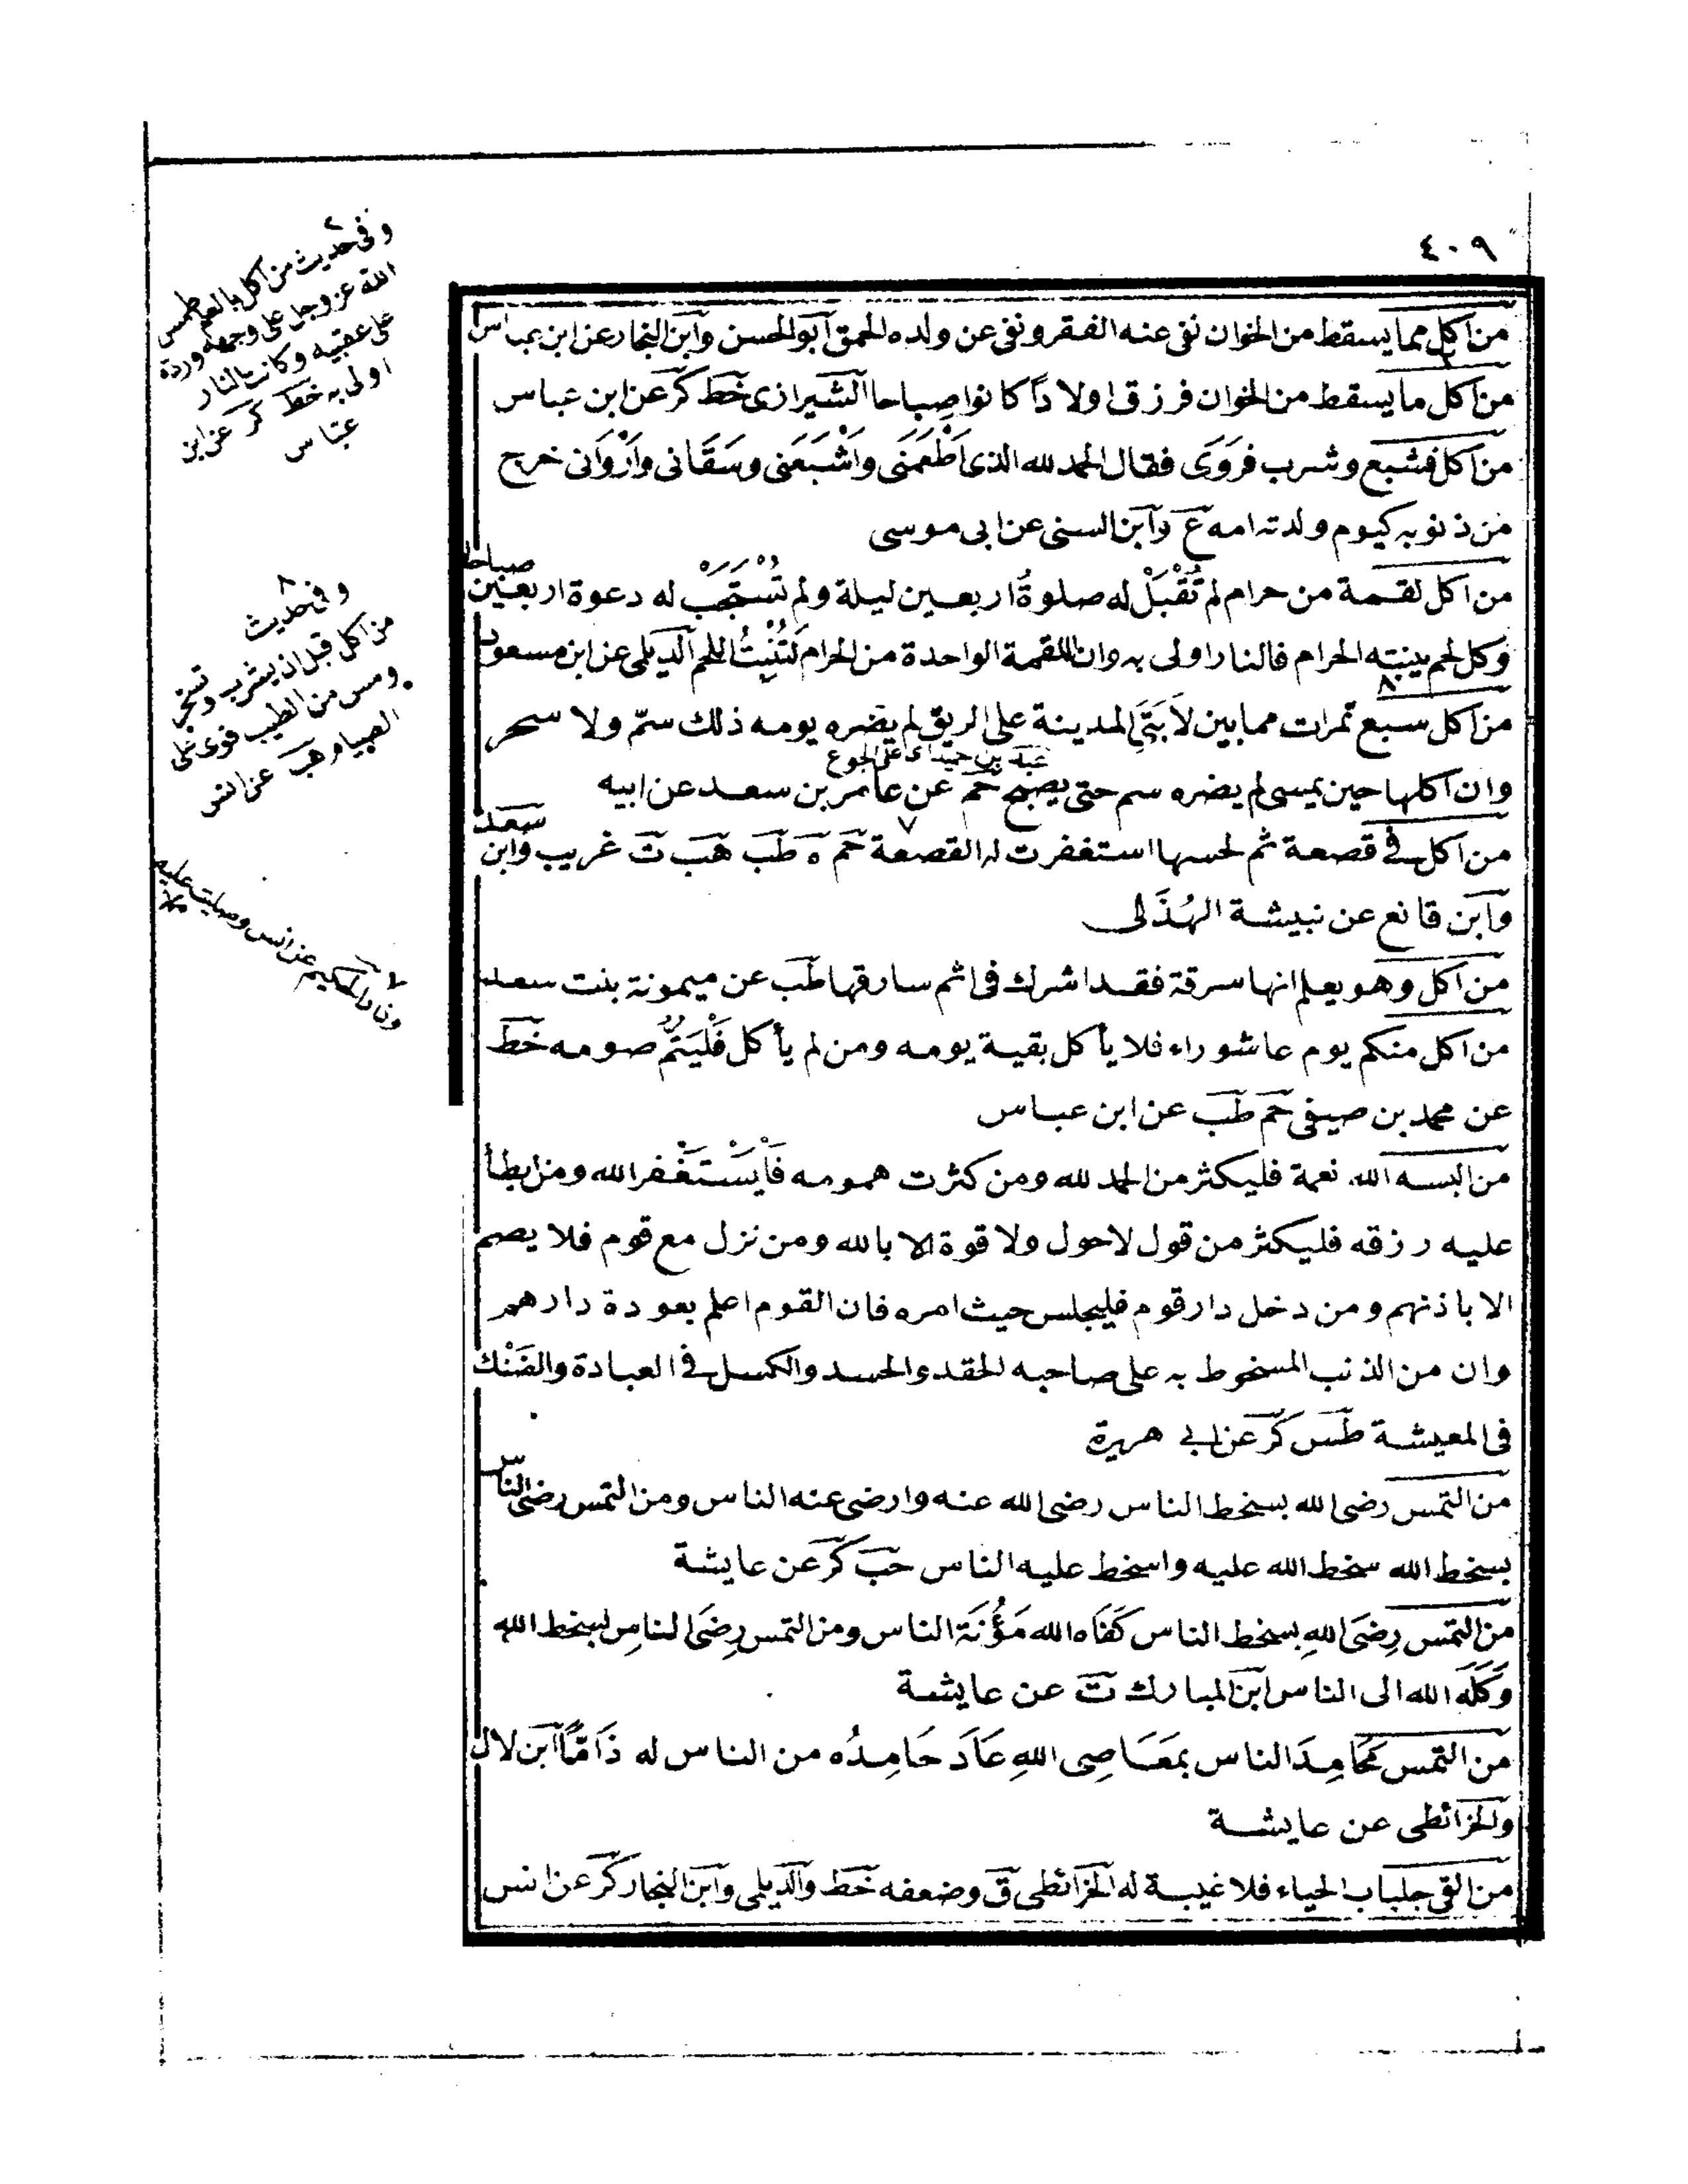 ٤٠٩
من اكل مما يسقط من الخوان نفى عنه الفقر ونفى عن ولده الحمق آبو الحسن وآبن النجار عن ابن عباس
من اكل ما يسقط من الخوان فرزق اولادًا كانوا صباحا الشيرازى خط كر عن ابن عباس
من اكل فشبع وشرب فَرَوَى فقال الحمد لله الذى اَطْعَمَنى واَشْبَعَنى وسَقَانى واَرْوَانى خرج
من ذنوبه كيوم ولدته امه ع وآبن السنى عن ابى موسى
من اكل لقمة من حرام لم تُقْبَلْ له صلوةُ اربعين ليلة ولم تُسْتَجَبْ له دعوة اربعين صباحا
وكل لحم ينبته الحرام فالنار اولى به وان اللقمة الواحدة من الحرام لَتُنْبِتُ اللحم الديلمى عن ابن مسعود
من اكل سبع تمرات مما بين لاَبَتَىِ المدينة على الريق لم يضره يومه ذلك سمّ ولا سحر
وان اكلها حين يمسى لم يضره سم حتى يصبح حم عن عامر بن سعد عن ابيه
عبد بن حميد اى على الجوع
سعد
من اكل فى قصعة ثم لحسها استغفرت له القصعة حم ه طب هب ت غريب وابن
وآبن قانع عن نبيشة الهُذَلى
من اكل وهو يعلم انها سرقة فقد اشرك فى اثم سارقها طب عن ميمونة بنت سعد
من اكل منكم يوم عاشوراء فلا يأكل بقية يومه ومن لم يأكل فَلْيَتُمَّ صومه خط
عن محمد بن صيفى حم طب عن ابن عباس
من البسه الله نعمة فليكثر من الحمد لله ومن كثرت همومه فَلْيَسْتَغْفر الله ومن ابطأ
عليه رزقه فليكثر من قول لاحول ولا قوة الا بالله ومن نزل مع قوم فلا يصم
الا باذنهم ومن دخل دار قوم فليجلس حيث امره فان القوم اعلم بعودة دارهم
وان من الذنب المسخوط به على صاحبه الحقد والحسد والكسل فى العبادة والضَنْك
فى المعيشة طس كر عن ابى هريرة
من التمس رضى الله بسخط الناس رضى الله عنه وارضى عنه الناس ومن التمس رضى الناس
بسخط الله سخط الله عليه واسخط عليه الناس حب كر عن عايشة
من التمس رِضَى اللهِ بسخط الناس كَفَاه الله مَؤُنَةَ الناس ومن التمس رِضَى الناسِ بسخط الله
وَكَلَه الله الى الناس ابن المبارك ت عن عايشة
من التمس مَحَامِدَ الناس بمَعَاصِى اللهِ عَادَ حَامِدُه من الناس له ذَامًّا آبن لال
والخرائطى عن عايشة
من القى جلباب الحياء فلا غيبة له الخرائطى ق وضعفه خط والديلمى وآبن النجار كر عن انس
وفى حديث من اكل بالعلم طمس
الله عز وجل على وجهه ورده
على عقبيه وكانت النار
اولى به خط كر عن ابن
عباس
وفى حديث
من اكل قبل ان يشرب وتسخر
ومس من الطيب قوى على
الصيام هب عن انس
ون د الحكيم عن انس وصليت عليه